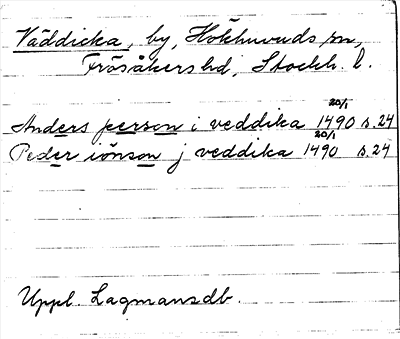 Väddicka, by, Hökhuvuds sn,
Frösåkers hd, Stockh. l.
20/1
Anders person i veddika 1490 s. 24
20/1
Peder iönson j veddika 1490 s. 24
Uppl. Lagmansdb.